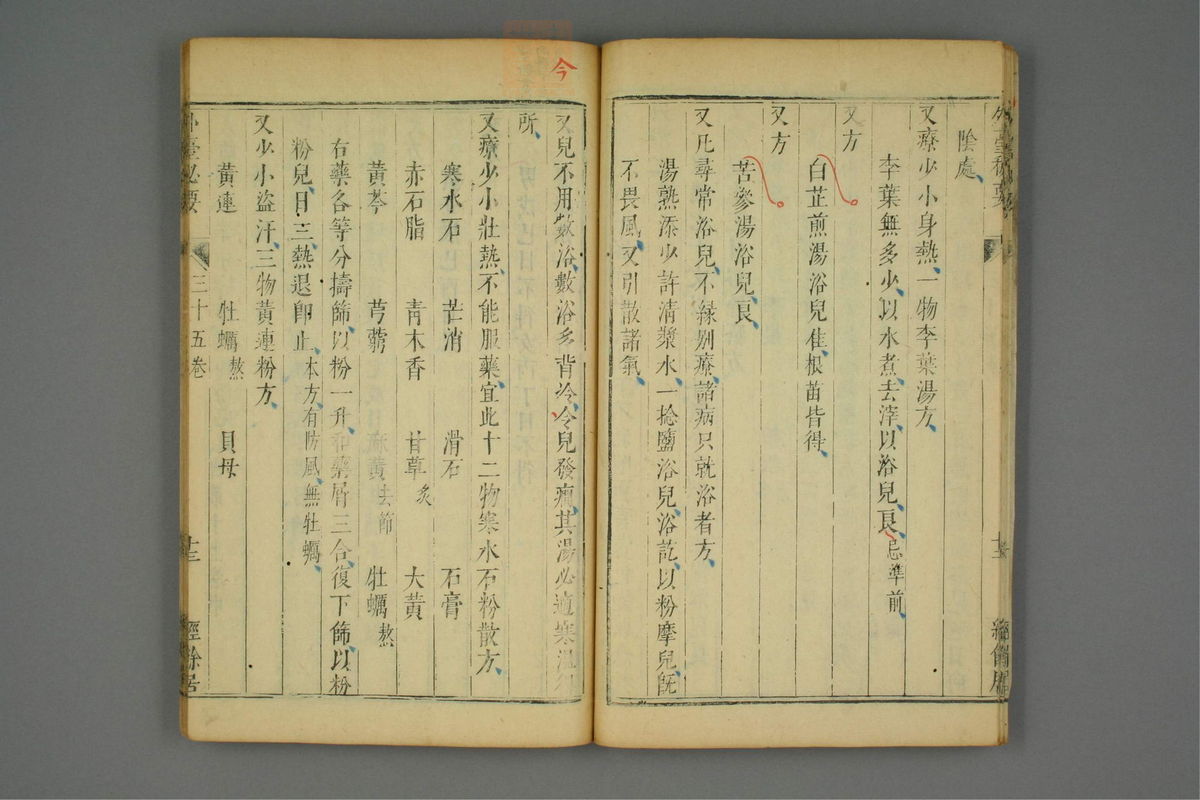 陰處
又療少小身熱一物李葉湯方
李葉無多少以水煮去滓以浴兒良忌準前
又方
白芷煎湯浴兒佳根苗皆得
又方
苦參湯浴兒良
又凡尋常浴兒不緣別療諸病只就浴者方
湯熟添少許清漿水一捻鹽浴兒浴訖以粉摩兒旣
不畏風又引散諸氣
今
又兒不用數浴數浴多背冷令兒發癎其湯必適寒溫
所
又療少小壯熱不能服藥宜此十二物寒水石粉散方
寒水石 芒消 滑石 石膏
赤石脂 靑木香 甘草炙 大黃
黃芩 芎藭 麻黃去節 牡蠣熬
右藥各等分擣篩以粉一升和藥屑三合復下篩以粉
粉兒日三熱退卽止本方有防風無牡蠣
又少小盜汗三物黃連粉方
黃連 牡蠣熬 貝母
外臺必要 三十五卷 十三 經餘居